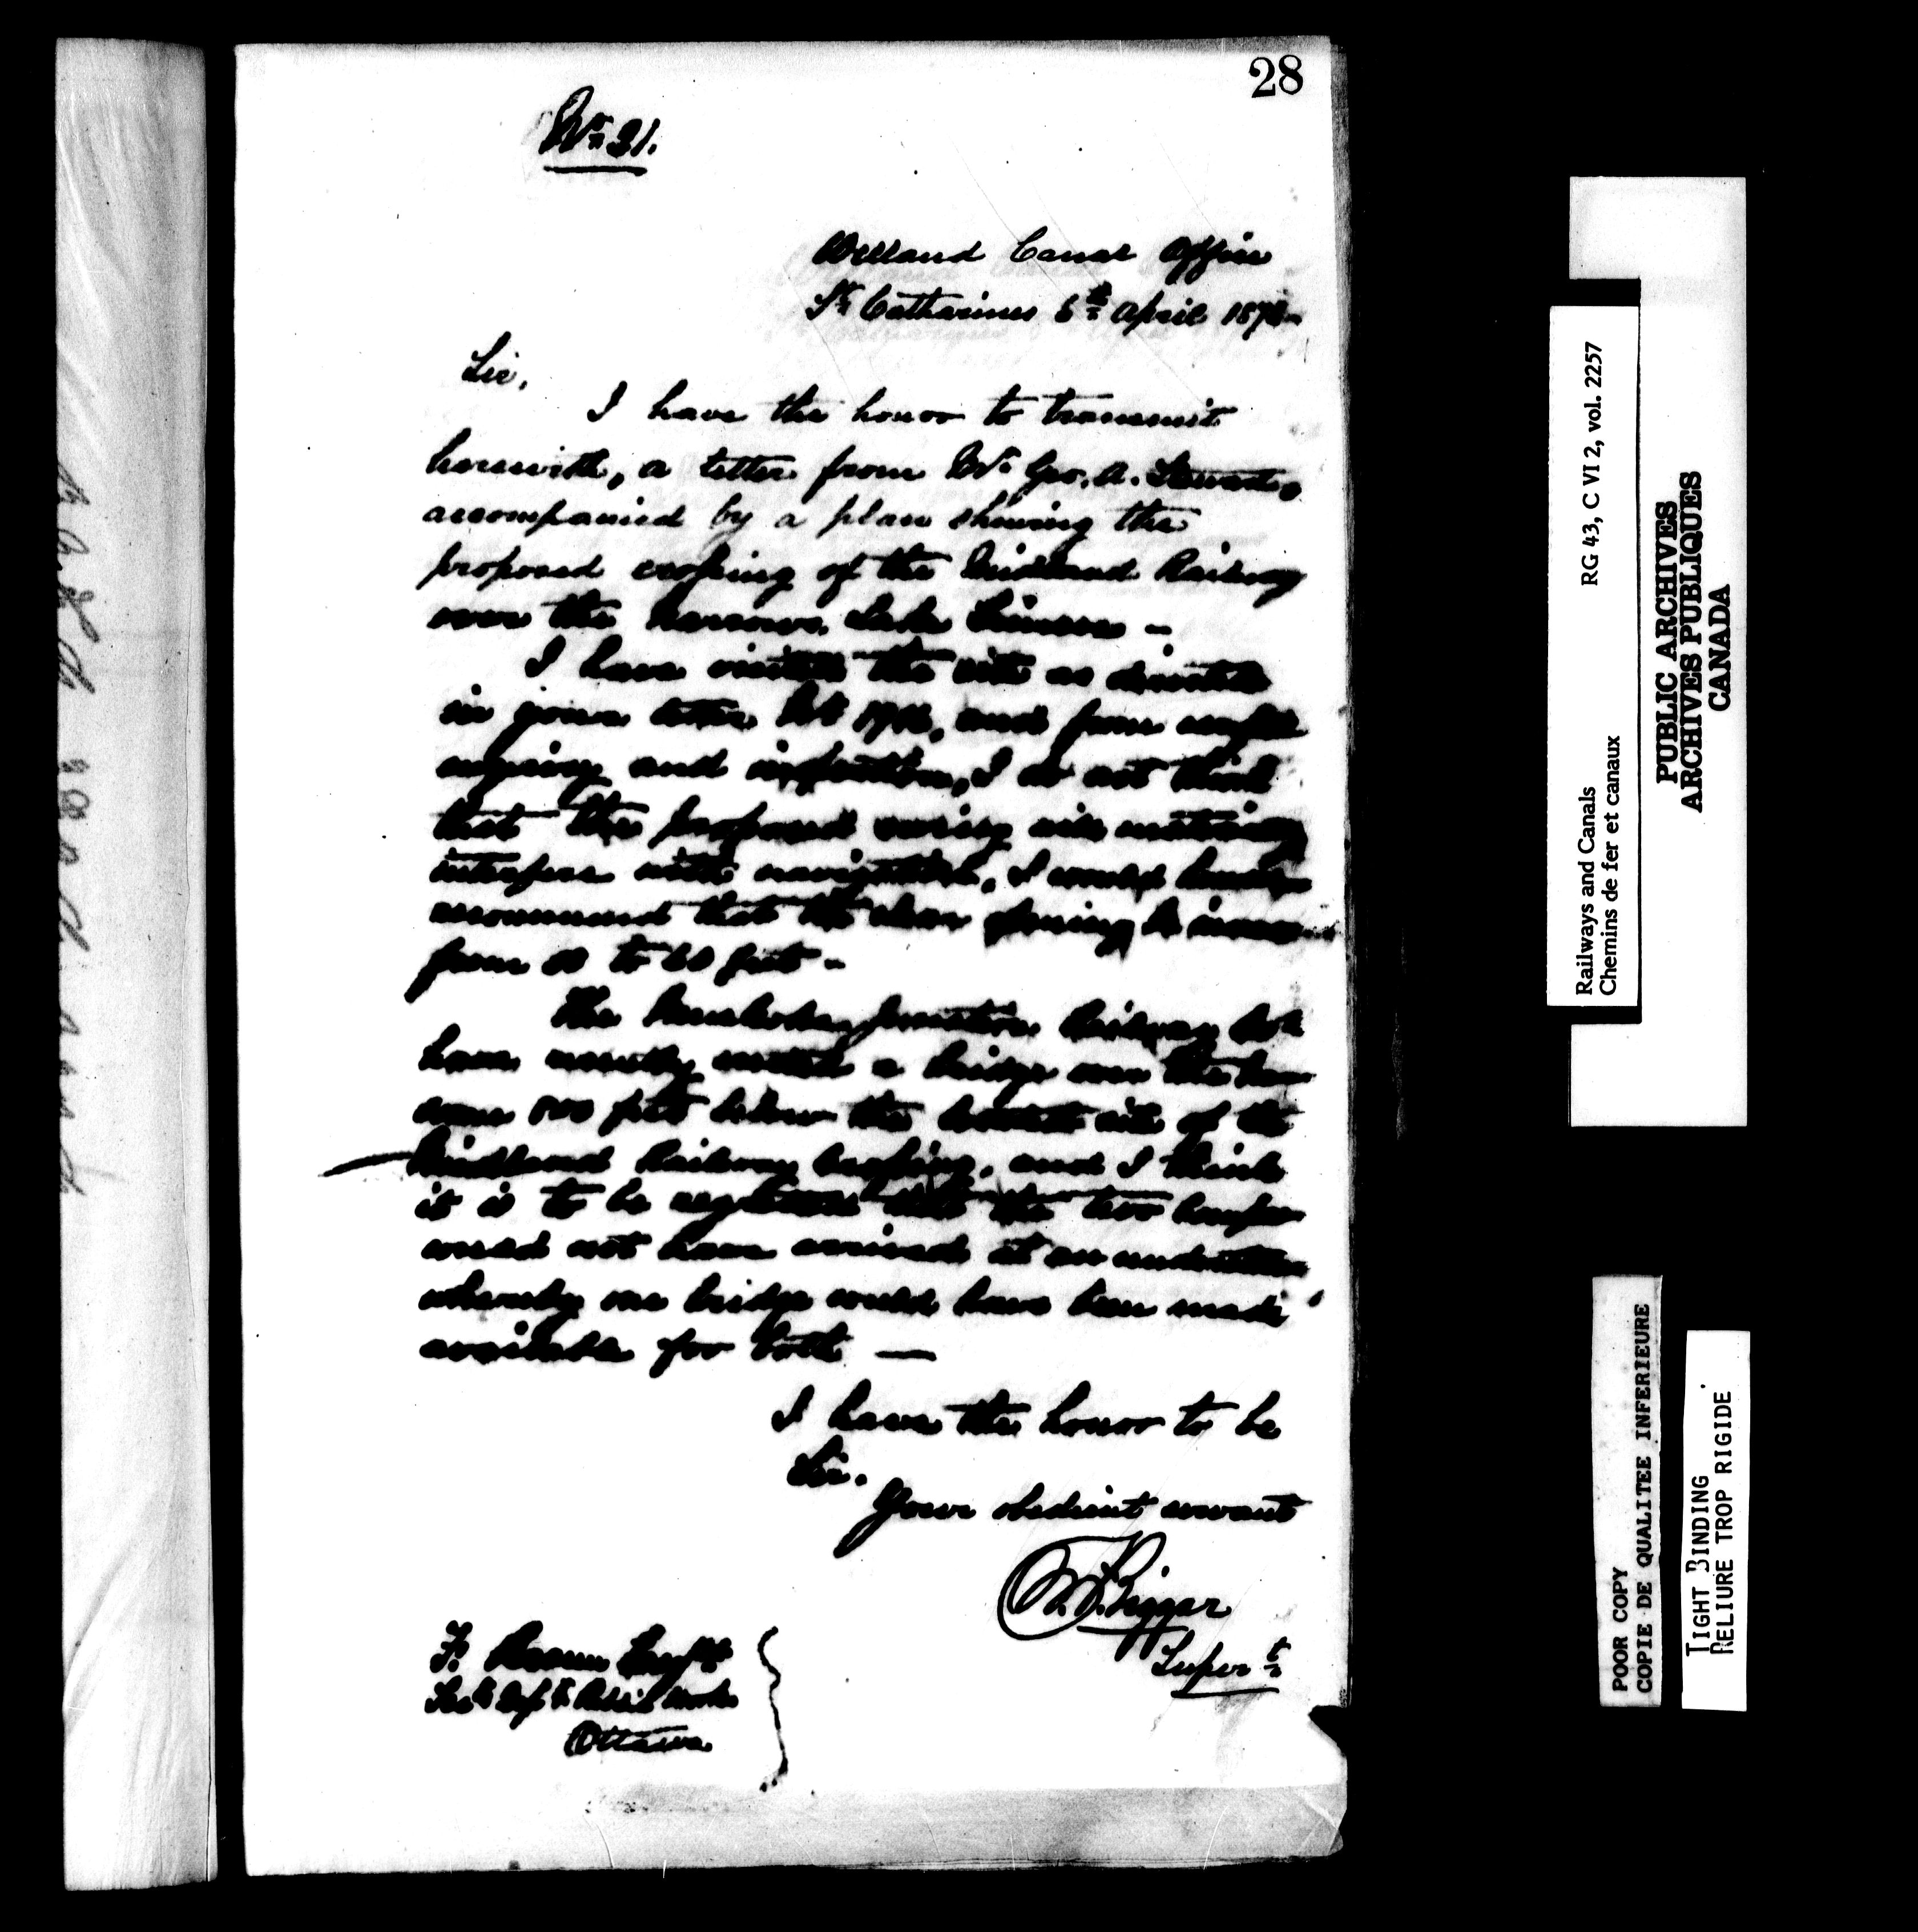 28
No 31.
Welland Canal Office
St Catharines 5th April 187
Sir,
I have the honor to transmit
herewith, a letter from Mr Geo. A. Stewart,
accompanied by a plan shewing the
proposed crossing of the Midland Railway
over the Narrows Lake Simcoe –
I have visited the site as directed
in your letter No 17 and from
enquiry and inspection, I do not think
that the proposed will
interfere with navigation. I would
recommend that the clear opening be
from to 60 feet –
The Muskoka Junction Railway
have recently erected a bridge over the
some 500 feet below the site of the
Midland Railway Crossing, and I think
it is to be regretted that the two
could not have arrived at an
whereby one bridge would have been made
available for both —
I have the honor to be
Sir.
Your obedient servant
Biggar
Supert
F. Braun Esqre
Secy Dept Public Works
Ottawa
RG 43, C VI 2, vol. 2257
Railways and Canals
Chemins de fer et canaux
PUBLIC ARCHIVES
ARCHIVES PUBLIQUES
CANADA
POOR COPY
COPIE DE QUALITEE INFERIEURE
TIGHT BINDING
RELIURE TROP RIGIDE